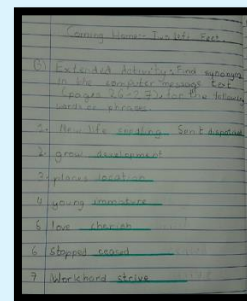 Coming Home: In
B) Extended Activity: Find synonyms
in the computer message text
(pages 26-27) for the following
words or phrases
1. New life sending Sent
2. grow development
3. places location
4. young immature
5. love cherish
6. Stopped ceased
7. Work hard strive